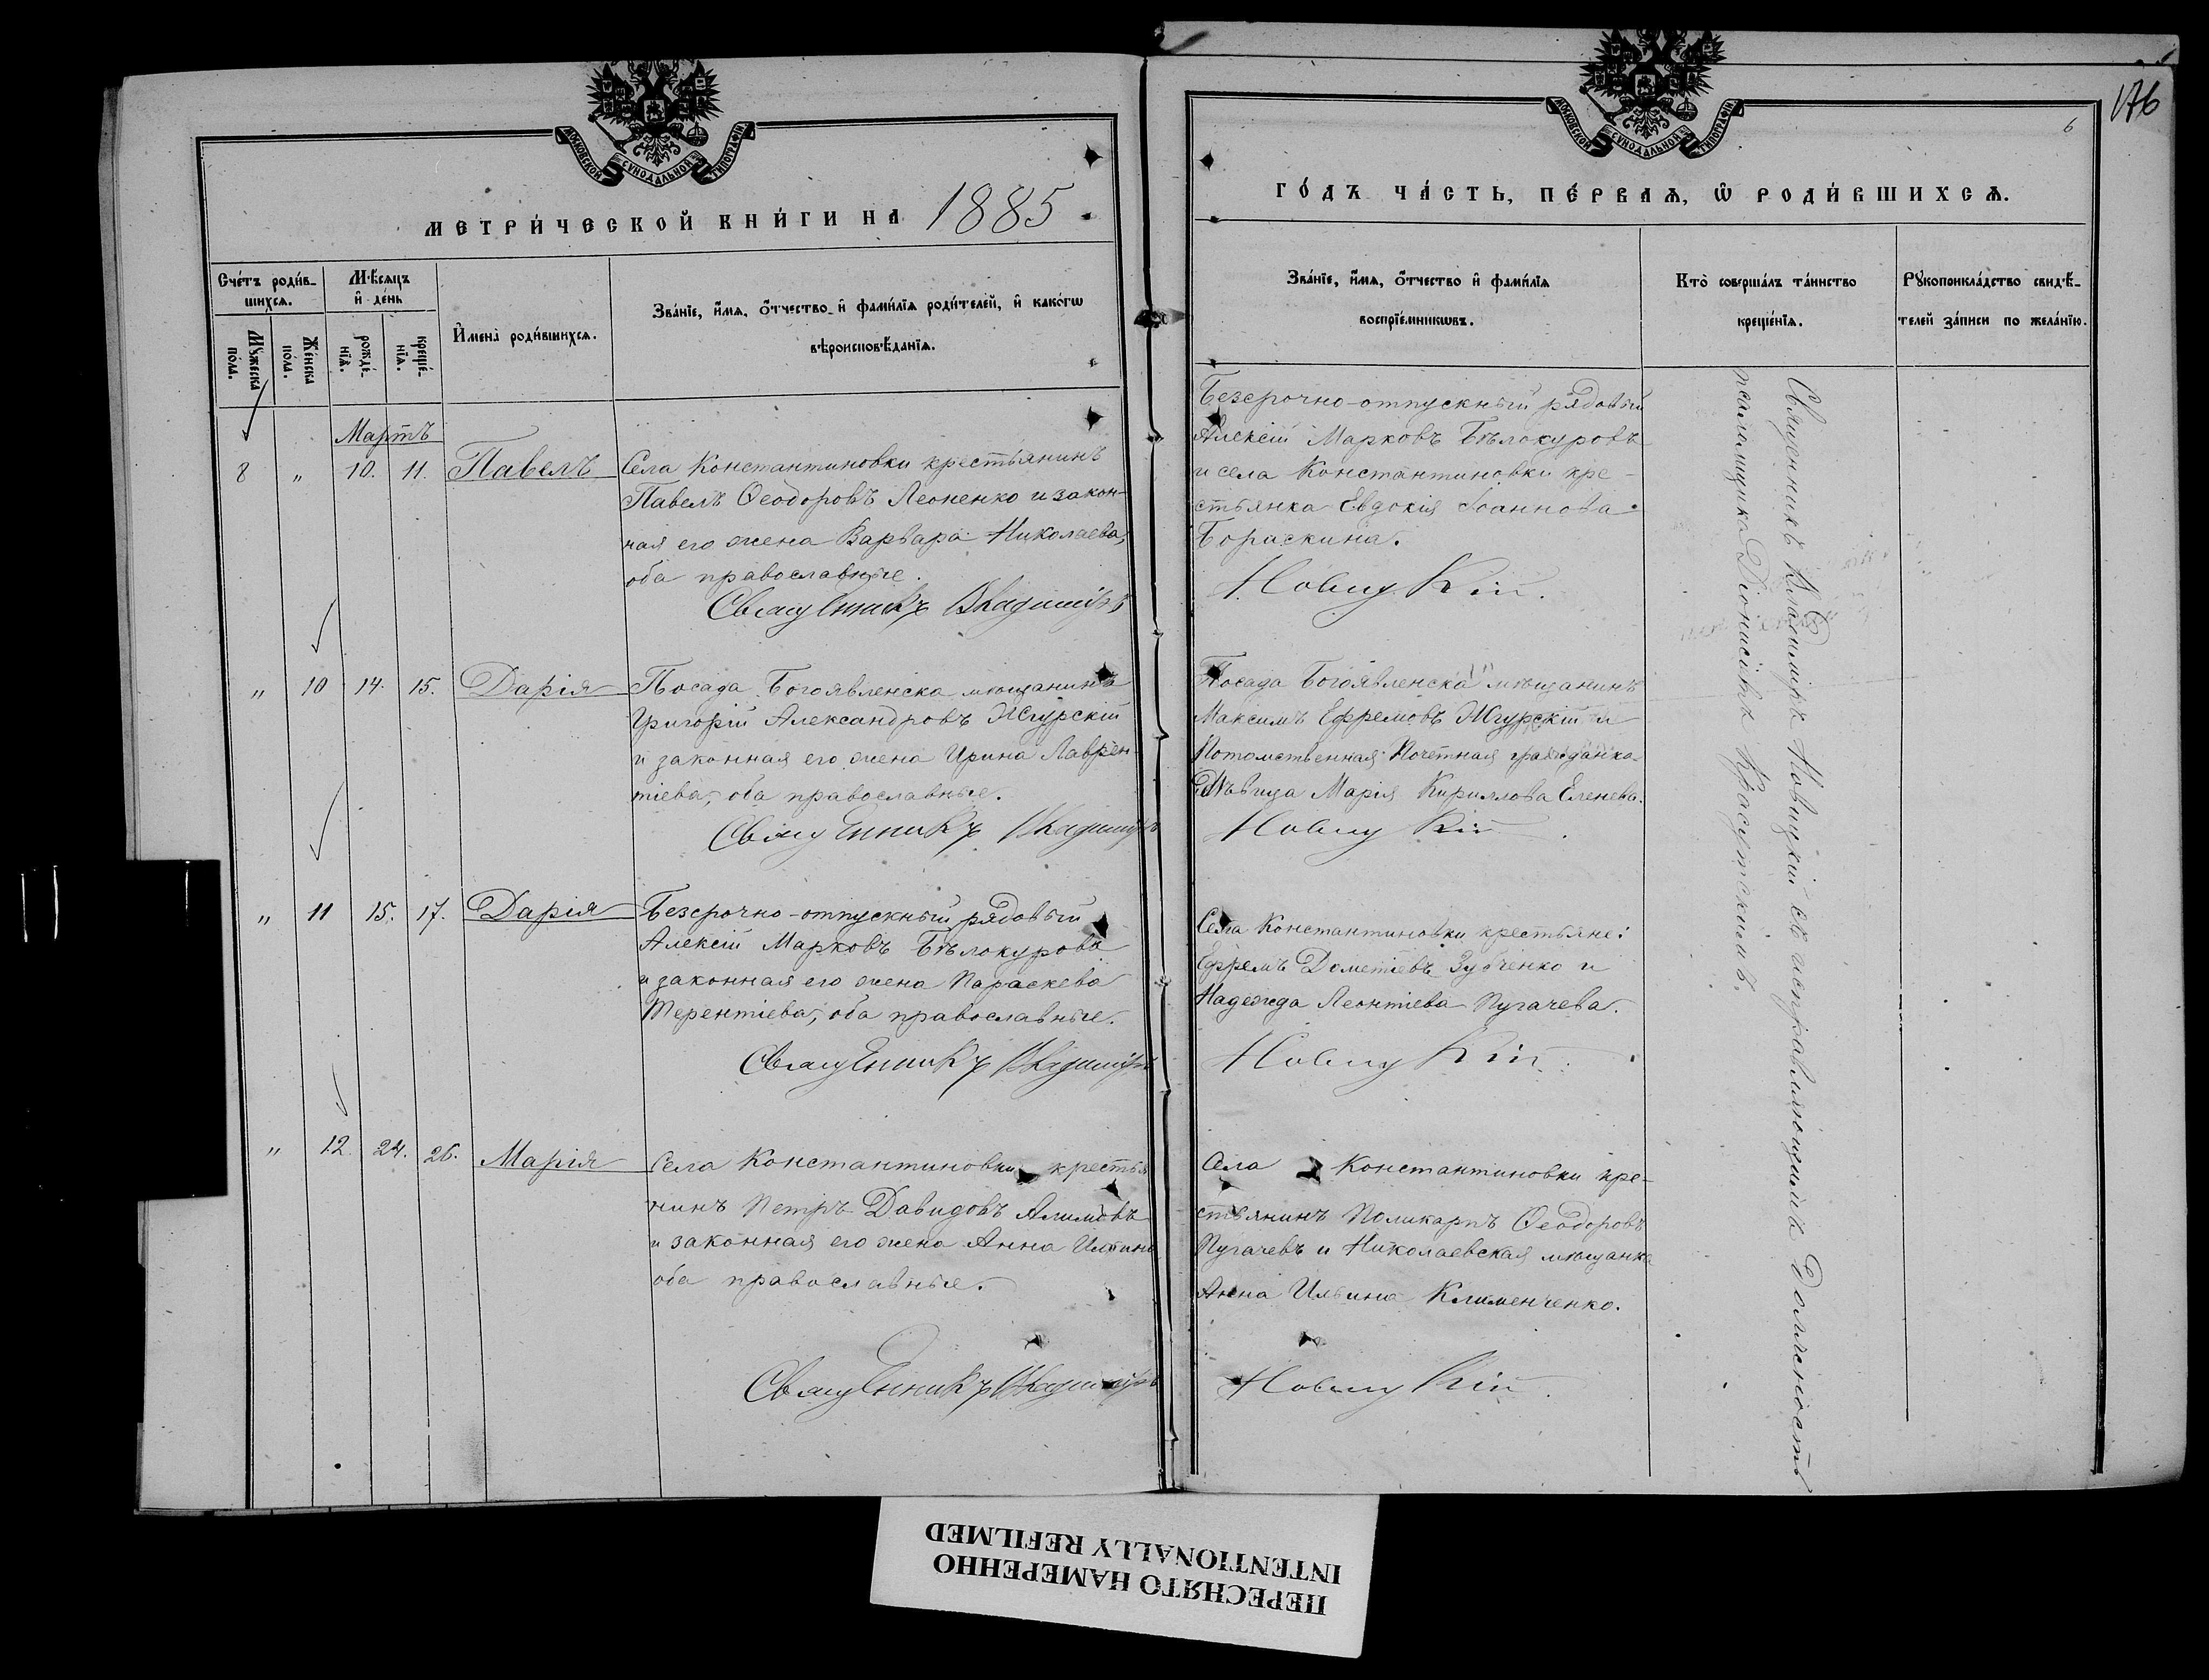 МОСКОВСКОЙ СУНОДАЛЬНОЙ ТИПОГРАФІИ
МЕТРИ́ЧЕСКОЙ КНИ́ГИ НА 1885
Сче́тъ роди́в-
шихся.
Мѣсяцъ
и де́нь
Му́жеска по́ла.
Же́нска по́ла.
рожде́-нія.
креще́-нія.
Имена̀ роди́вшихся.
Зва́ніе, и́мя, о́тчество и фами́лія роди́телей, и како́гѡ
вѣроисповѣ́данія.
Мартъ
8 " 10. 11. Павелъ
Села Константиновки крестьянинъ
Павелъ Ѳеодоровъ Леоненко и закон-
ная его жена Варвара Николаева,
оба православные.
Священникъ Владиміръ
" 10 14. 15. Дарія
Посада Богоявленска мѣщанинъ
Григорій Александровъ Жгурскій
и законная его жена Ирина Лаврен-
тіева, оба православные.
Священникъ Владиміръ
" 11 15. 17. Дарія
Безсрочно-отпускный рядовый
Алексій Марковъ Бѣлокуровъ
и законная его жена Параскева
Терентіева, оба православные.
Священникъ Владиміръ
" 12. 24. 26. Марія
Села Константиновки крестья
нинъ Петръ Давидовъ Алимовъ
и законная его жена Анна Ильина
оба православные.
Священникъ Владиміръ
176
6
МОСКОВСКОЙ СУНОДАЛЬНОЙ ТИПОГРАФІИ
ГО́ДЪ ЧА́СТЬ, ПЕ́РВАЯ, Ѡ РОДИ́ВШИХСЯ.
Зва́ніе, и́мя, о́тчество и фами́лія
воспріе́мникѡвъ.
Кто̀ соверша́лъ та́инство
креще́нія.
Рукоприкла́дство свидѣ́-
телей за́писи по жела́нію.
Безсрочно-отпускный рядовый
Алексій Марковъ Бѣлокуровъ
и села Константиновки кре-
стьянка Евдокія Іоаннова
Бораскина.
Новицкій.
Посада Богоявленска мѣщанинъ
Максимъ Ефремовъ Жгурскій и
Потомственная Почетная гражданка
Дѣвица Марія Кириллова Еленева.
Новицкій
Села Константиновки крестьяне:
Ефремъ Дометіевъ Зубченко и
Надежда Леонтіева Пугачева.
Новицкій.
Села Константиновки кре-
стьянинъ Поликарпъ Ѳеодоровъ
Пугачевъ и Николаевская мѣщанка
Анна Ильина Клименченко.
Новицкій.
Священникъ Владиміръ Новицкій съ исправляющимъ должность
псаломщика Діонисіемъ Красутскимъ.
ПЕРЕСНЯТО НАМЕРЕННО
INTENTIONALLY REFILMED